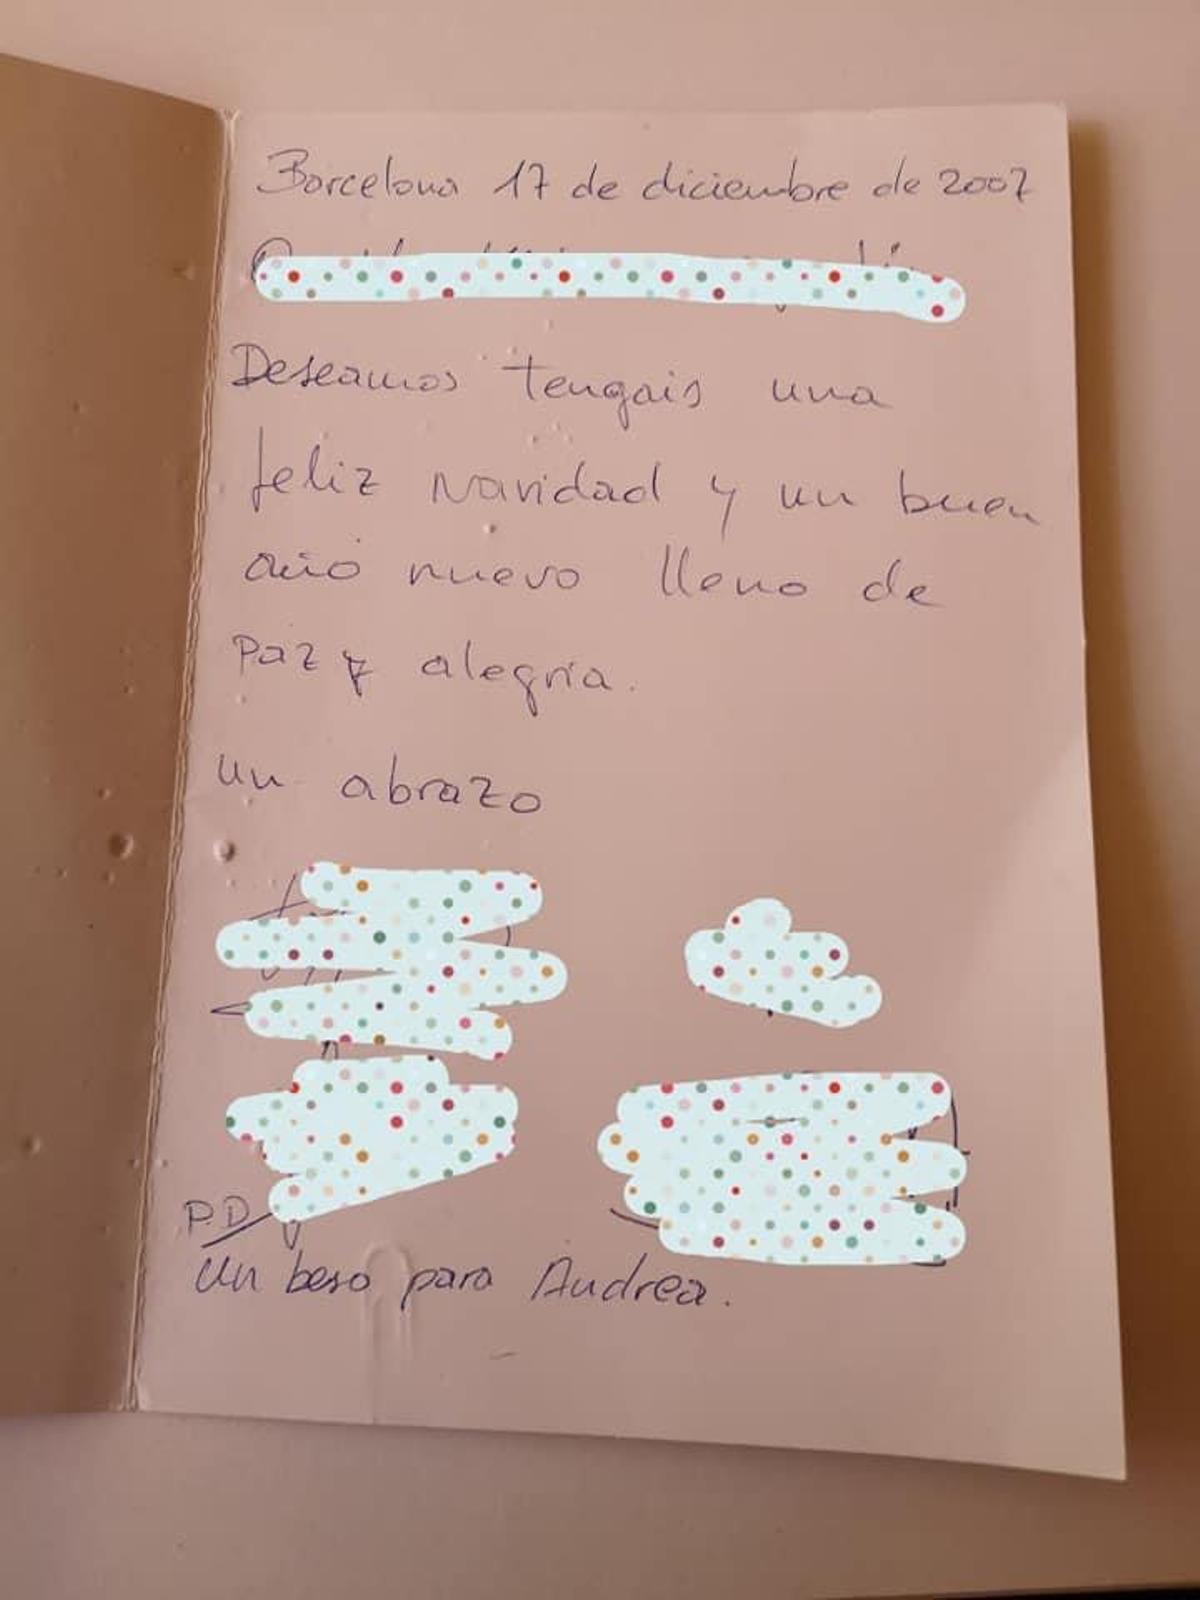 Barcelona 17 de diciembre de 2007
Deseamos tengais una
feliz navidad y un buen
año nuevo lleno de
Paz y alegria.
un abrazo
P.D
Un beso para Andrea.